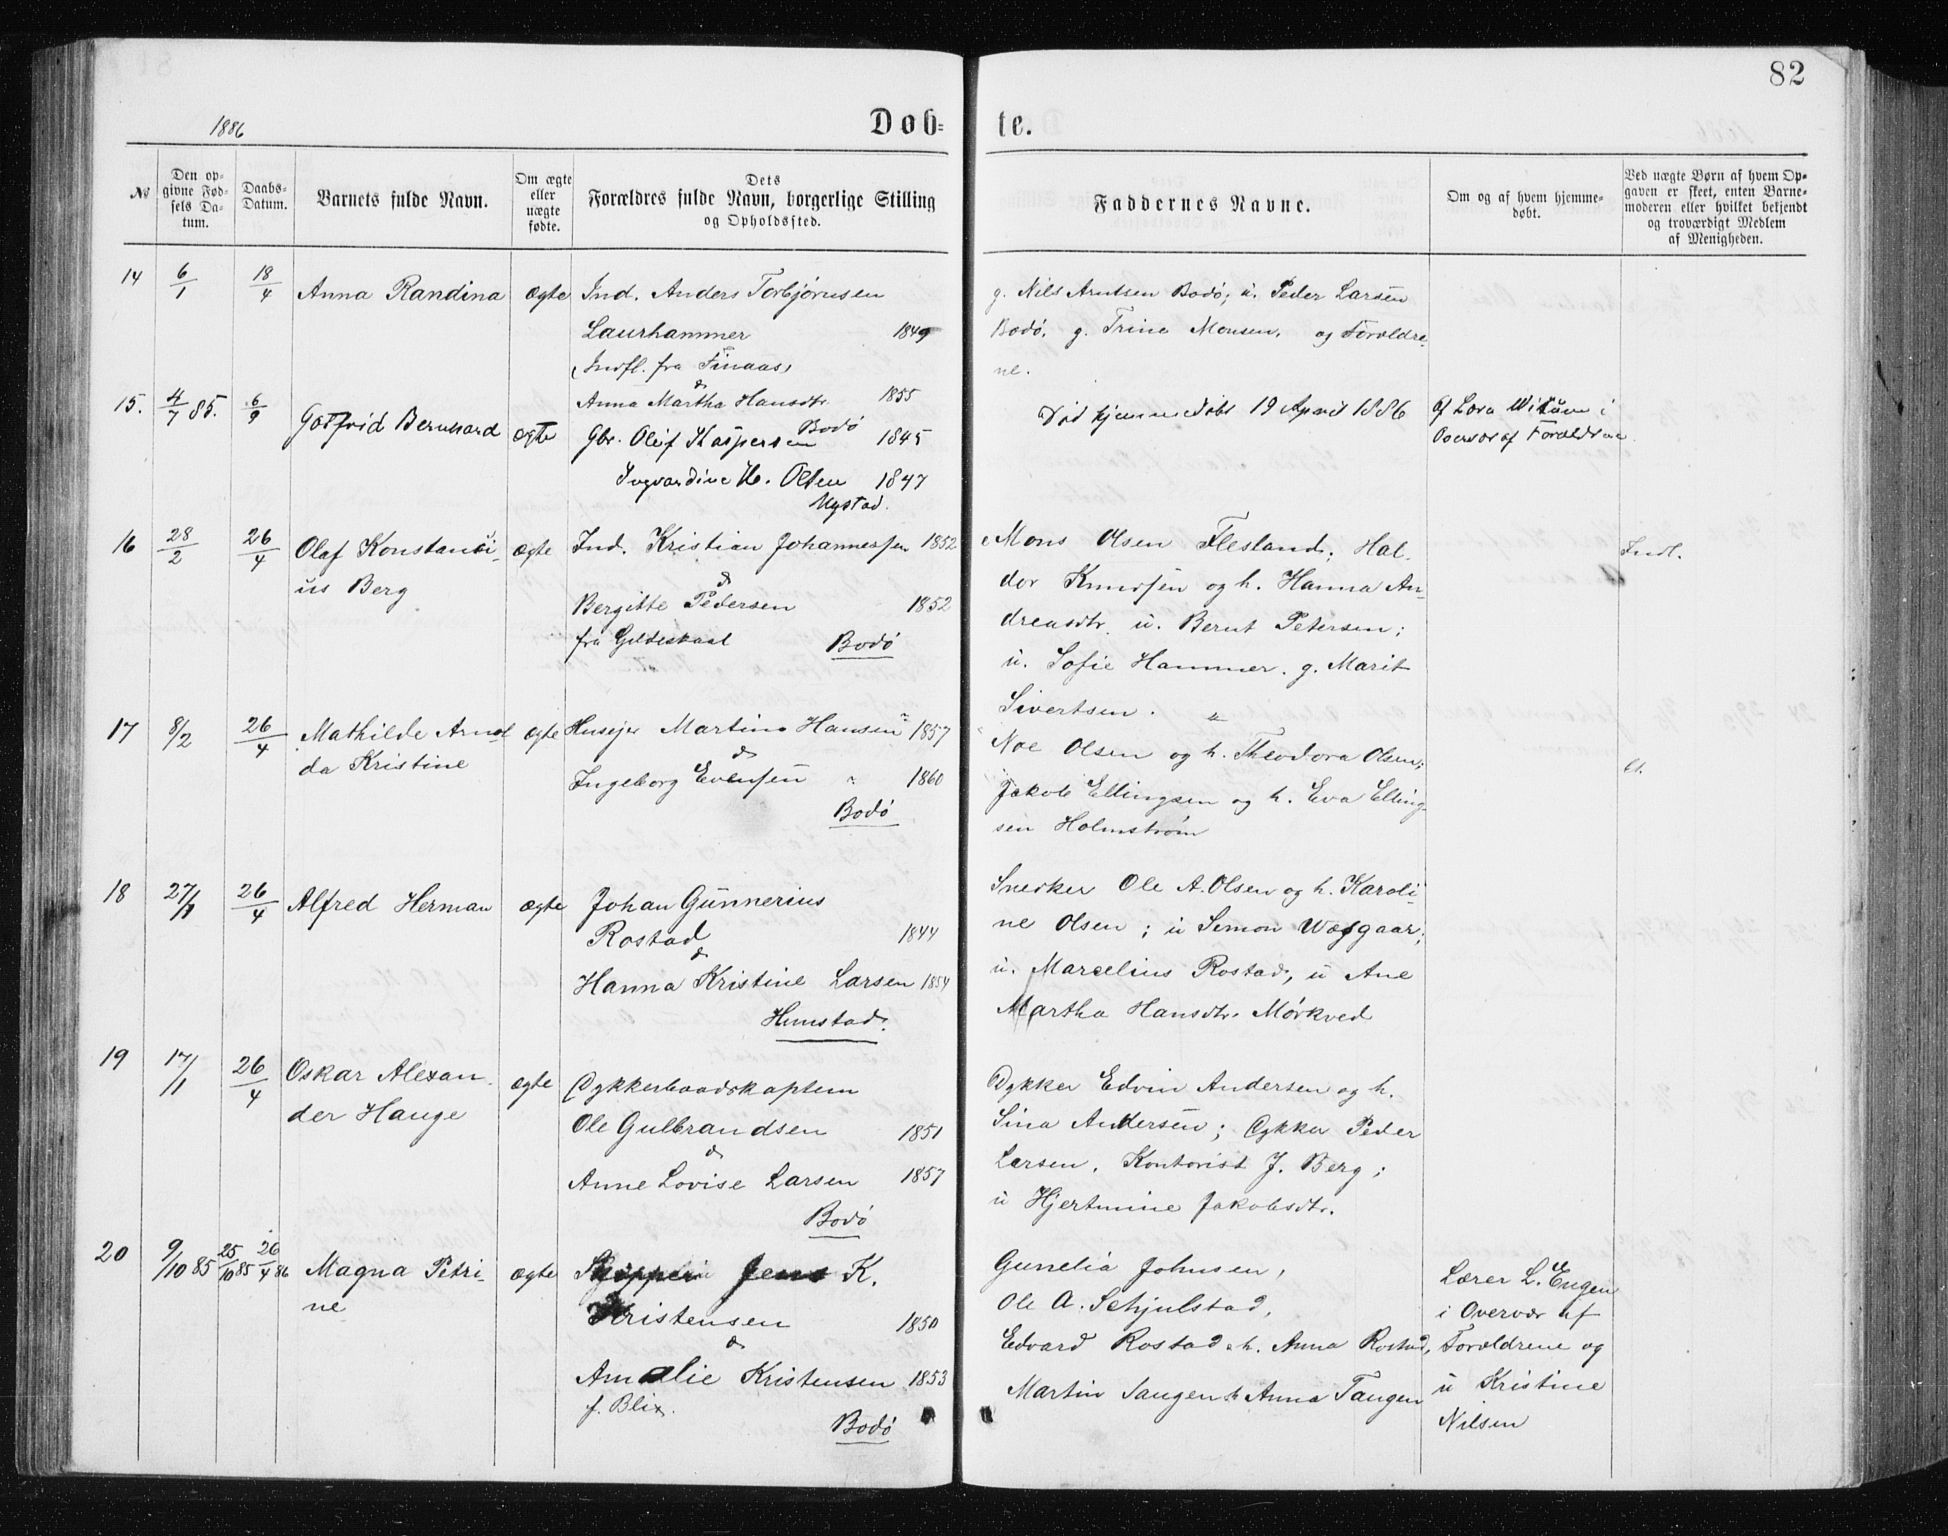 82
1886
Døb-
te.
№
Den op-
givne Fød-
sels Da-
tum.
Daabs-
Datum.
Barnets fulde Navn.
Om ægte
eller
uægte
fødte.
Dets
Forældres fulde Navn, borgerlige Stilling
og Opholdssted.
Faddernes Navne.
Om og af hvem hjemme-
døbt.
Ved uægte Børn af hvem Op-
gaven er skeet, enten Barne-
moderen eller hvilket bekjendt
og troværdigt Medlem
af Menigheden.
14
6/1
18/4
Anna Randina
ægte
Ind. Anders Torbjørnsen
Laurhammer 1849
(Indfl. fra Finaas)
&
Anna Martha Hansdtr 1855
Bodø
g. Nils Arntsen Bodø, u. Peder Larsen
Bodø. g. Trine Monsen, og Forældre-
ne.
15.
4/7 85.
6/9
Gotfrid Bernhard
ægte
Gbr. Olef Kaspersen 1845
Ingvardine H. Olsen 1847
Nystad.
Død hjemmedøbt 19 April 1886
Af Lars
i
Overvær af Forældrene
16
28/2
26/4
Olaf Konstanti-
us Berg
ægte
Ind. Kristian Johannessen 1852
&
Bergitte Pedersen 1852
fra Gildeskaal Bodø
Mons Olsen Flesland, Hal-
dor Knudsen og h. Hanna An-
dreasdtr. u. Bernt Petersen;
u. Sofie Hammer. g. Marit
Sivertsen.
Indl.
17
8/2
26/4
Mathilde Arnol
da Kristine
ægte
Husejer Martin Hansen 1857
&
Ingeborg Evensen 1860
Bodø
Noe Olsen og h. Theodora Olsen;
Jakob Ellingsen og h. Eva Elling-
sen Holmstrøm
18
27/1
26/4
Alfred Herman
ægte
Johan Gunnerius
Rostad 1844
&
Hanna Kristine Larsen 1854
Hunstad.
Snedker Ole A. Olsen og h. Karoli-
ne Olsen; u Simon Waagaar;
u. Marcelius Rostad, u Ane
Martha Hansdtr. Mørkved
19
17/1
26/4
Oskar Alexan-
der Hauge
ægte
Dykkerbaadskaptein
Ole Gulbrandsen 1851
&
Anne Lovise Larsen 1857
Bodø
Dykker Edvin Andersen og h.
Sina Andersen; Dykker Peder
Larsen, Kontorist J. Berg;
u Hjertmine Jakobsdtr.
20
9/10 85
25/10 85 26/4 86
Magna Petri-
ne
ægte
Skipper Jens K.
Kristensen 1850
&
Amalie Kristensen 1853
f. Blix.
Bodø
Gunelia Johnsen,
Ole A. Schjulstad,
Edvard Rostad & h. Anna Rostad,
Martin Tangen & Anna Tangen
Lærer L. Engen
i Overvær af
Forældrene og
u Kristine
Nilsen